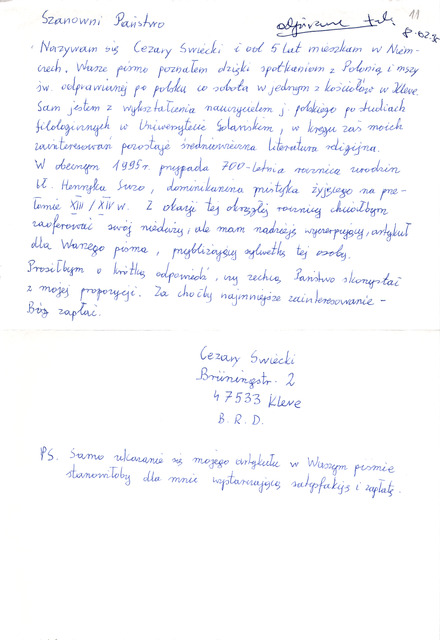 11
Szanowni Państwo
odpisane tak
8.02.95
Nazywam się Cezary Świecki i od 5 lat mieszkam w Niem-
czech. Wasze pismo poznałem dzięki spotkaniom z Polonią i mszy
św. odprawianej po polsku co sobota w jednym z kościołów w Kleve.
Sam jestem z wykształcenia nauczycielem j. polskiego po studiach
filologicznych w Uniwersytecie Gdańskim, w kręgu zaś moich
zainteresowań pozostaje średniowieczna literatura religijna.
W obecnym 1995r. przypada 700-letnia rocznica urodzin
bł. Henryka Suzo, dominikanina mistyka żyjącego na prze-
łomie XIII/XIV w. Z okazji tej okrągłej rocznicy chciałbym
zaoferować swój nieduży, ale mam nadzieję wyczerpujący, artykuł
dla Waszego pisma, przybliżający sylwetkę tej osoby.
Prosiłbym o krótką odpowiedź, czy zechcą Państwo skorzystać
z mojej propozycji. Za choćby najmniejsze zainteresowanie -
Bóg zapłać.
Cezary Świecki
Brüningstr. 2
47533 Kleve
B.R.D.
PS. Samo ukazanie się mojego artykułu w Waszym piśmie
stanowiłoby dla mnie wystarczającą satysfakcję i zapłatę.